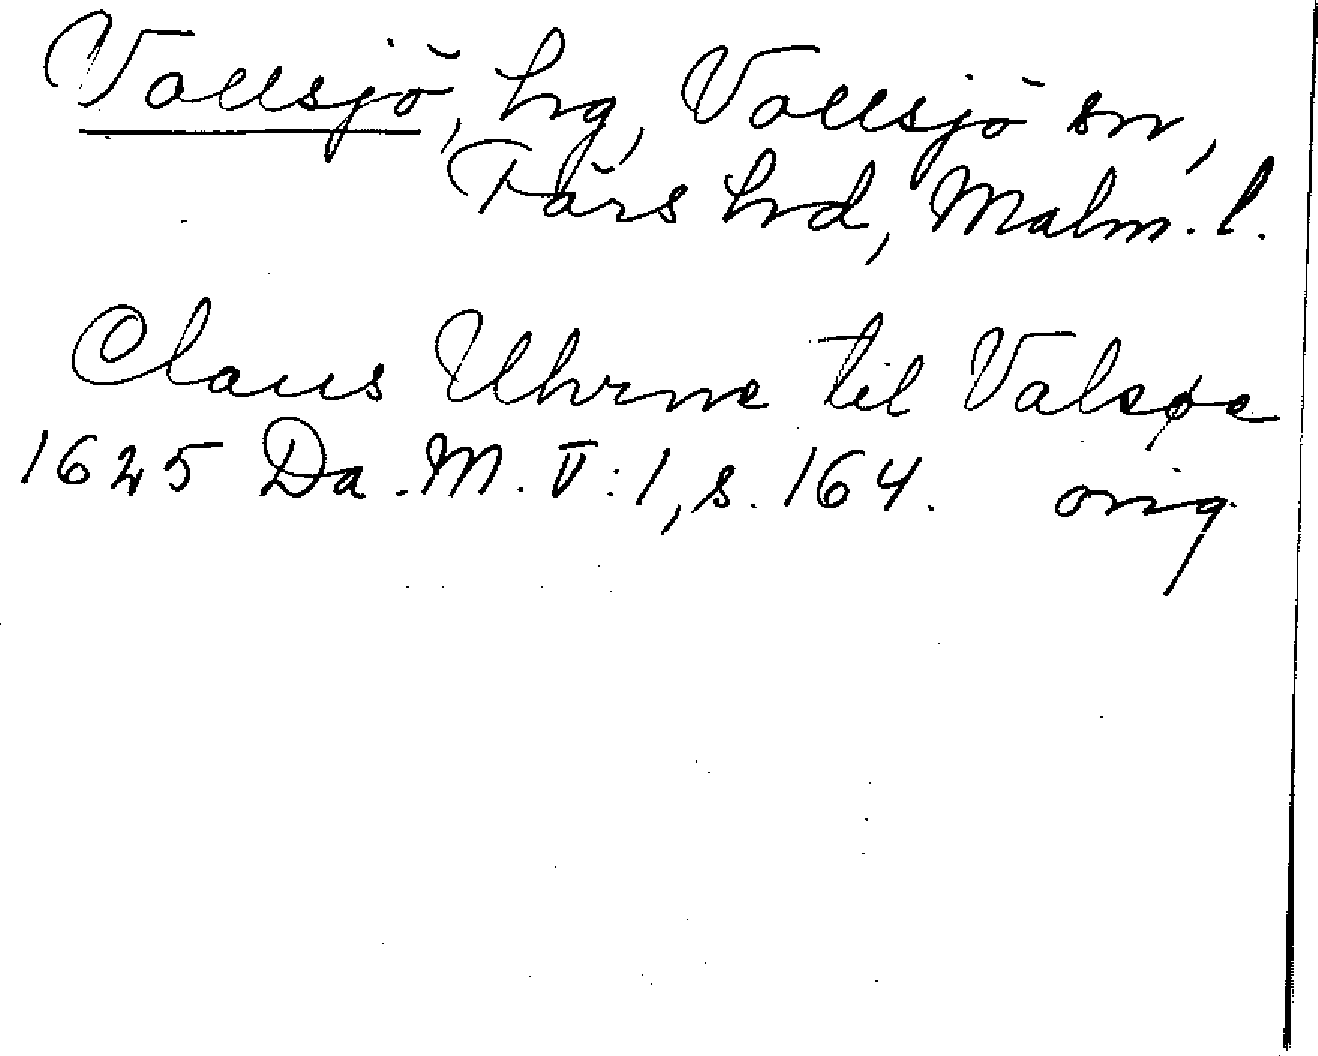 Vollsjö, hg, Vollsjö sn,
Färs hrd, Malm. l.
Claus Uhrne til Valsøe
1625 Da. M. V:1, s. 164. orig.